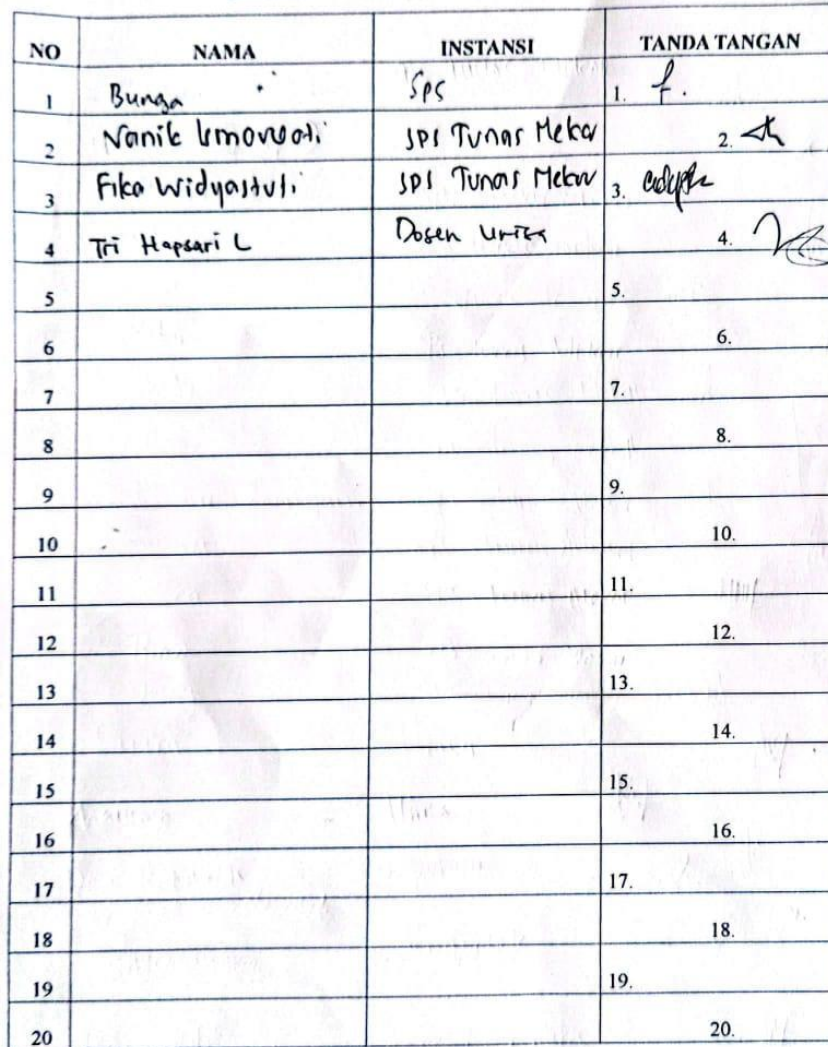 NO NAMA INSTANSI TANDA TANGAN
1 Bunga SPS 1.
2 Nanik Ismowati SPS Tunas Mekar 2.
3 Fika Widyastuti SPS Tunas Mekar 3.
4 Tri Hapsari L Dosen 4.
5 5.
6 6.
7 7.
8 8.
9 9.
10 10.
11 11.
12 12.
13 13.
14 14.
15 15.
16 16.
17 17.
18 18.
19 19.
20 20.